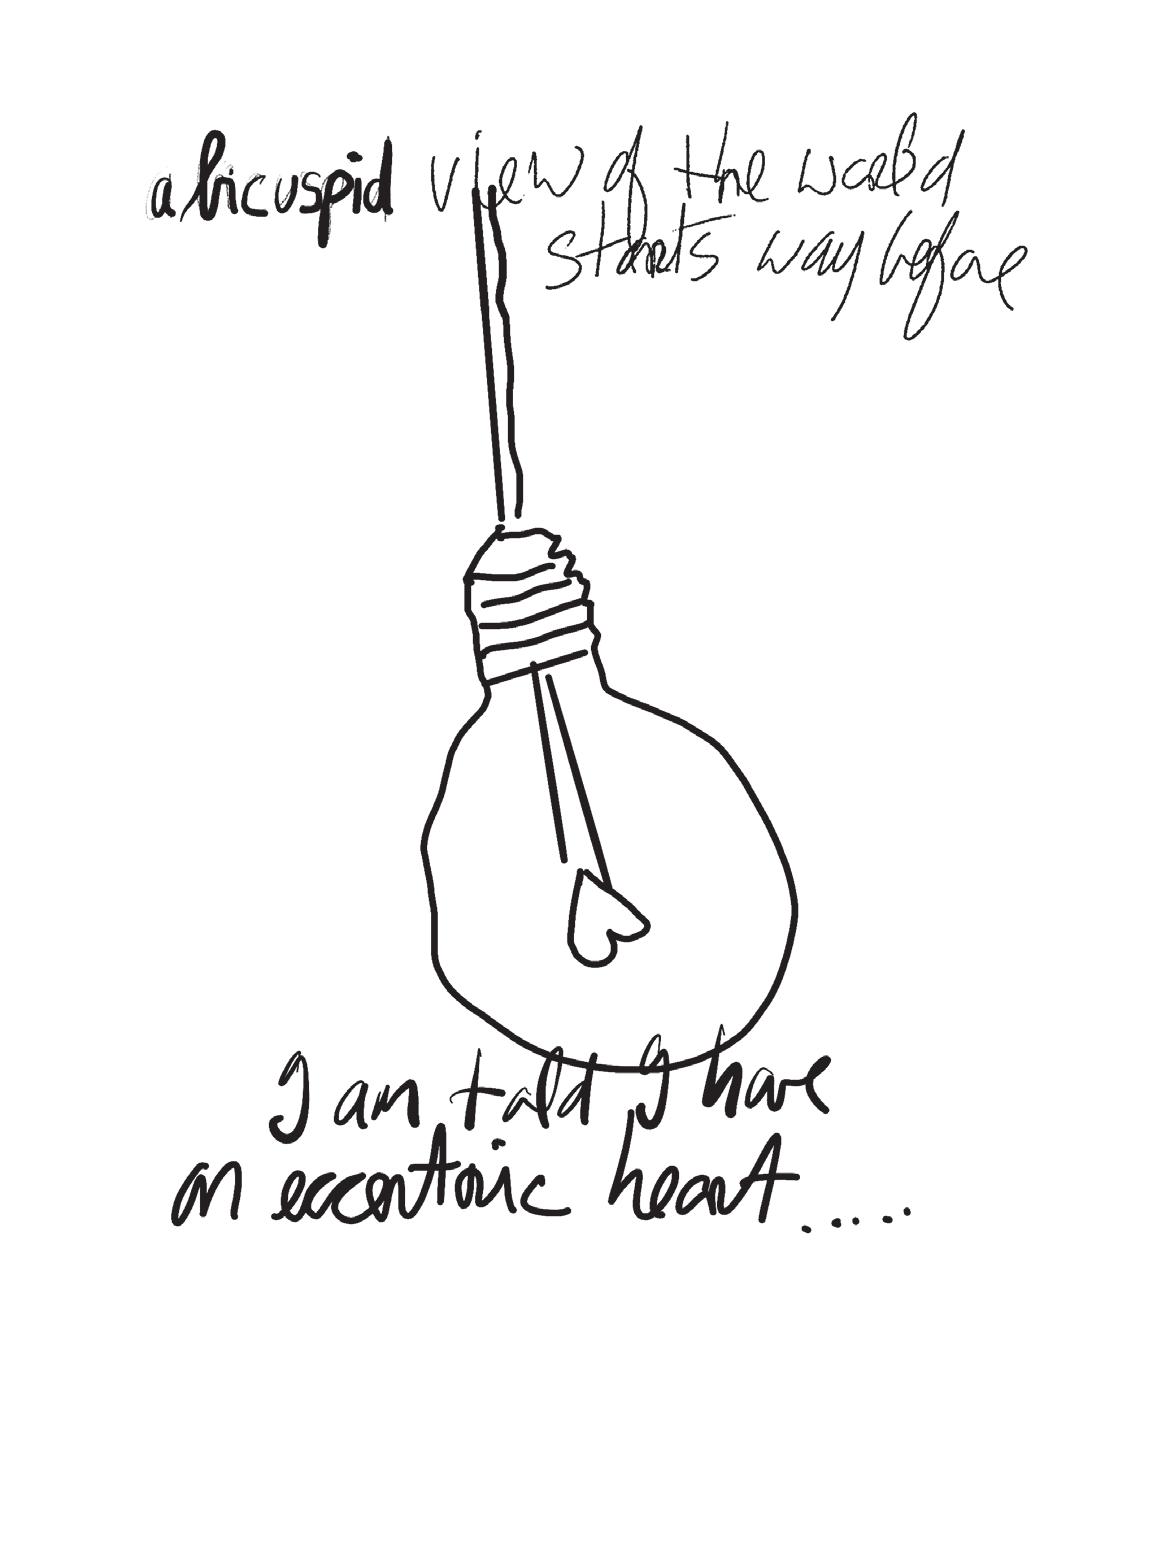 a bicuspid view of the world
starts way before
I am told I have
an eccentric heart.....